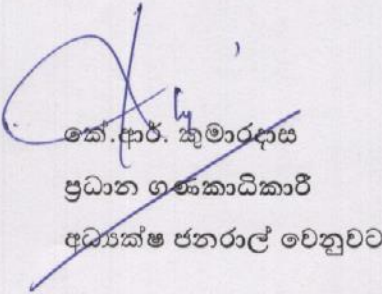 කේ.ආර්. කුමාරදාස
ප්‍රධාන ගණකාධිකාරී
අධ්‍යක්ෂ ජනරාල් වෙනුවට